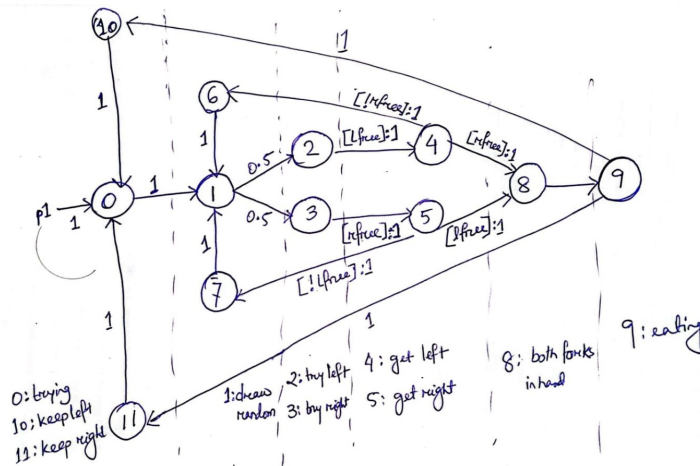 10
11
1
6
[!rfree]:1
1
0.5
2
[lfree]:1
4
[rfree]:1
p1
1
0
1
1
8
9
0.5
3
[rfree]:1
5
[lfree]:1
1
7
[!lfree]:1
1
1
11
0: trying
10: keep left
11: keep right
1: draw
random
2: try left
3: try right
4: get left
5: get right
8: both forks
in hand
9: eating